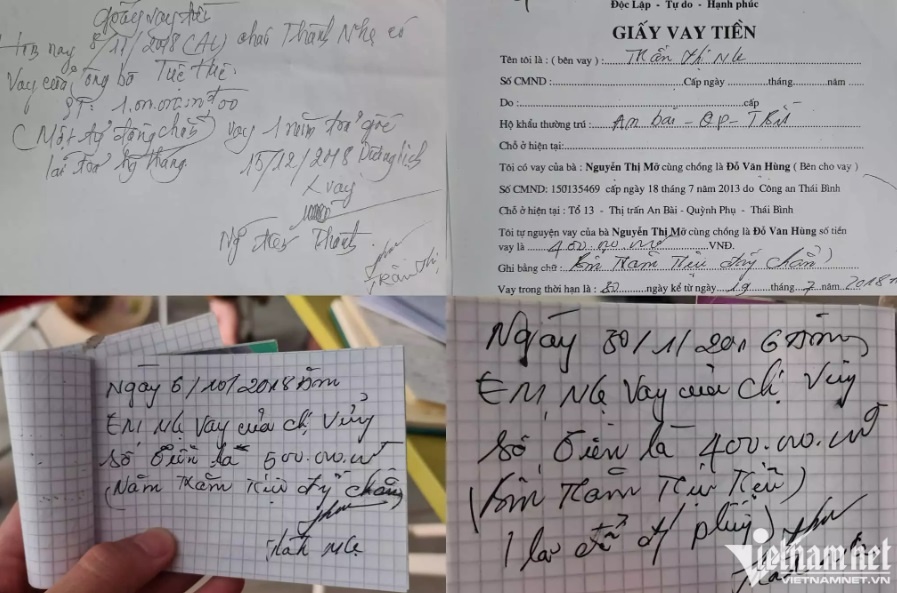 Giấy vay tiền
Hôm nay 8/11/2018 (AL) cháu Thành Nhẹ có
Vay của ông bà Tuệ
ST 1.000.000.000đ00
(Một tỷ đồng chẵn) vay 1 năm
lãi tháng
15/12/2018 Dương lịch
vay
Thành
Trần Thị
Độc Lập - Tự do - Hạnh phúc
GIẤY VAY TIỀN
Tên tôi là : ( bên vay ) : Trần Thị Nhẹ
Số CMND : Cấp ngày tháng năm
Do : cấp
Hộ khẩu thường trú : An bài - QP - TB
Chỗ ở hiện tại:
Tôi có vay của bà : Nguyễn Thị Mỡ cùng chồng là Đỗ Văn Hùng ( Bên cho vay )
Số CMND: 150135469 cấp ngày 18 tháng 7 năm 2013 do Công an Thái Bình
Chỗ ở hiện tại : Tổ 13 - Thị trấn An Bài - Quỳnh Phụ - Thái Bình
Tôi tự nguyện vay của bà Nguyễn Thị Mỡ cùng chồng là Đỗ Văn Hùng số tiền
vay là 400.000.000đ VNĐ.
Ghi bằng chữ : Bốn Trăm Triệu chẵn)
Vay trong thời hạn là : ngày kể từ ngày 19 tháng 7 năm 2018
Ngày 6/10/2018 âm
EM Nhẹ Vay của chị Vủy
số tiền là 500.000.000đ
(Năm Trăm Triệu chẵn)
Nhẹ
Ngày 30/1/2016 
EM Nhẹ Vay của chị Vủy
số tiền là 400.000.000đ
(Bốn Trăm Triệu)
Vietnamnet
VIETNAMNET.VN